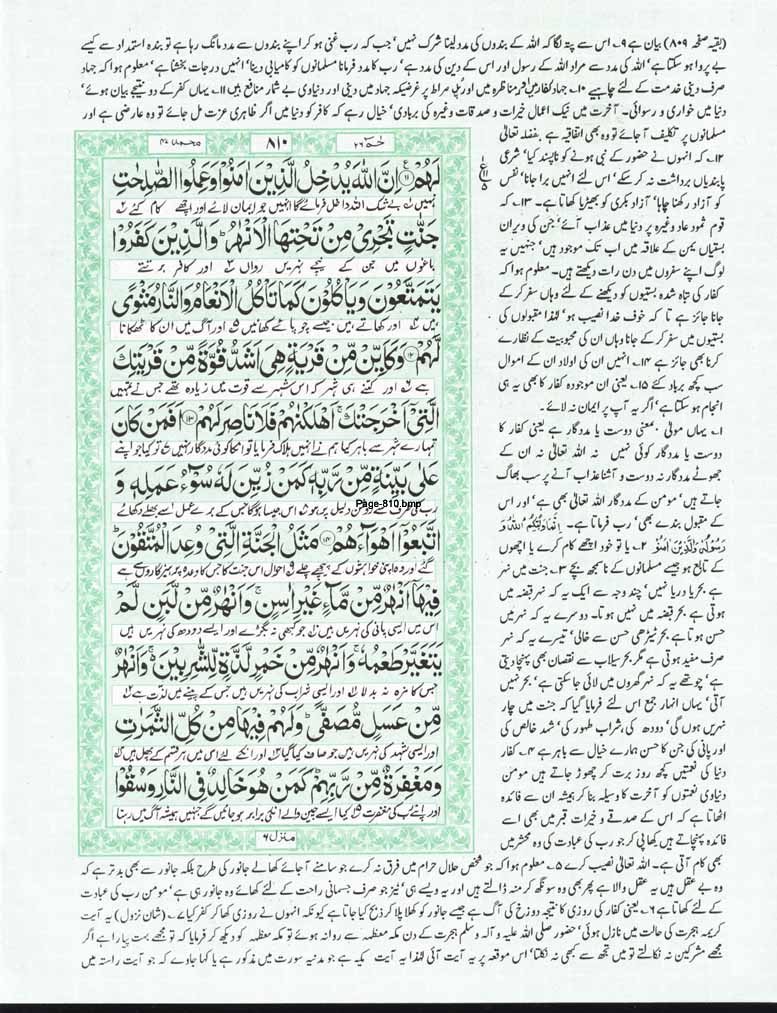 (بقیہ صفحہ ۸۰۹) بیان ہے ۹۔ اس سے پتہ لگا کہ اللہ کے بندوں کی مدد لینا شرک نہیں' جب کہ رب غنی ہو کر اپنے بندوں سے مدد مانگ رہا ہے تو بندہ استمداد سے کیسے
بے پروا ہو سکتا ہے' اللہ کی مدد سے مراد اللہ کے رسول اور اس کے دین کی مدد ہے' رب کا مدد فرمانا مسلمانوں کو کامیابی دینا' انہیں درجات بخشنا ہے' معلوم ہوا کہ جہاد
صرف دینی خدمت کے لئے چاہیے ۱۰۔ جہاد کفار میں اور مناظرہ میں اور پل صراط پر غرضیکہ جہاد میں دینی اور دنیاوی بے شمار منافع ہیں ۱۱۔ یہاں کفر کے دو نتیجے بیان ہوئے'
دنیا میں خواری و رسوائی۔ آخرت میں نیک اعمال خیرات و صدقات وغیرہ کی بربادی' خیال رہے کہ کافر کو دنیا میں اگر ظاہری عزت مل جائے تو وہ عارضی ہے اور
مسلمانوں پر تکلیف آ جائے تو وہ بھی اتفاقیہ ہے بفضلہ تعالیٰ
۱۲۔ کہ انہوں نے حضور کے نبی ہونے کو ناپسند کیا' شرعی
پابندیاں برداشت نہ کر سکے' اس لئے انہیں برا جانا' نفس
کو آزاد رکھنا چاہا' آزاد بکری کو بھیڑیا کھاتا ہے۔ ۱۳۔ کہ
قوم ثمود عاد وغیرہ پر دنیا میں عذاب آئے' جن کی ویران
بستیاں یمن کے علاقہ میں اب تک موجود ہیں' جنہیں یہ
لوگ اپنے سفروں میں دن رات دیکھتے ہیں۔ معلوم ہوا کہ
کفار کی تباہ شدہ بستیوں کو دیکھنے کے لئے وہاں سفر کر کے
جانا جائز ہے تا کہ خوف خدا نصیب ہو' لہٰذا مقبولوں کی
بستیوں میں سفر کر کے جانا وہاں ان کی محبوبیت کے نظارے
کرنا بھی جائز ہے ۱۴۔ انہیں ان کی اولاد ان کے اموال
سب کچھ برباد کئے ۱۵۔ یعنی ان موجودہ کفار کا بھی یہ ہی
انجام ہو سکتا ہے' اگر یہ آپ پر ایمان نہ لائے۔
۱۔ یہاں مولٰی معنی دوست یا مددگار ہے یعنی کفار کا
دوست یا مددگار کوئی نہیں نہ اللہ تعالیٰ نہ ان کے
جھوٹے مددگار نہ دوست و آشنا عذاب آنے پر سب بھاگ
جاتے ہیں' مومن کے مددگار اللہ تعالیٰ بھی ہے' اور اس
کے مقبول بندے بھی' رب فرماتا ہے۔ اِنَّمَا وَلِیُّکُمُ اللّٰہُ وَ
رَسُوْلُہٗ وَالَّذِیْنَ اٰمَنُوْ ۲۔ یا تو خود اچھے کام کرے یا اچھوں
کے تابع ہو جیسے مسلمانوں کے ناسمجھ بچے ۳۔ جنت میں نہر
ہے بحر یا دریا نہیں' چند وجہ سے ایک یہ کہ نہر قبضہ میں
ہوتی ہے بحر قبضہ میں نہیں ہوتا۔ دوسرے یہ کہ نہر میں
حسن ہوتا ہے بحر ٹیڑھی حسن سے خالی' تیسرے یہ کہ نہر
صرف مفید ہوتی ہے مگر بحر سیلاب سے نقصان بھی پہنچا دیتی
ہے' چوتھے یہ کہ نہر گھروں میں لائی جا سکتی ہے' بحر نہیں
آتی' یہاں انہار جمع اس لئے فرمایا گیا کہ جنت میں چار
نہریں ہوں گی' دودھ کی' شراب طہور کی' شہد خالص کی
اور پانی کی جن کا حسن ہمارے خیال سے باہر ہے ۴۔ کفار
دنیا کی نعمتیں کچھ روز برت کر چھوڑ جاتے ہیں مومن
دنیاوی نعمتوں کو آخرت کا وسیلہ بنا کر ہمیشہ ان سے فائدہ
اٹھاتا ہے کہ اس کے صدقے و خیرات قبر میں بھی اسے
فائدہ پہنچاتے ہیں کھا پی کر جو رب کی عبادت کی وہ محشر میں
بھی کام آتی ہے۔ اللہ تعالیٰ نصیب کرے ۵۔ معلوم ہوا کہ جو شخص حلال حرام میں فرق نہ کرے جو سامنے آ جائے کھا لے جانور کی طرح بلکہ جانور سے بھی بدتر ہے کہ
وہ بے عقل ہیں یہ عقل والا ہے پھر بھی وہ سونگھ کر منہ ڈالتے ہیں اور یہ ویسے ہی' نیز جو صرف جسمانی راحت کے لئے کھائے وہ جانور ہی ہے' مومن رب کی عبادت
کے لئے کھاتا ہے ۶۔ یعنی کفار کی روزی کا نتیجہ دوزخ کی آگ ہے جیسے جانور کو کھلا پلا کر ذبح کیا جاتا ہے کیونکہ انہوں نے روزی کھا کر کفر کیا ۷۔ (شان نزول) یہ آیت
کریمہ ہجرت کی حالت میں نازل ہوئی' حضور صلی اللہ علیہ و آلہ وسلم ہجرت کے دن مکہ معظمہ سے روانہ ہوئے تو مکہ معظمہ کو دیکھ کر فرمایا کہ تو مجھے بہت پیارا ہے اگر
مجھے مشرکین نہ نکالتے تو میں تجھ سے کبھی نہ نکلتا' اس موقعہ پر یہ آیت آئی لہٰذا یہ آیت مکیہ ہے جو مدنیہ سورت میں مذکور ہے یا کہا جاوے کہ جو آیت راستہ میں
محمد ۴۷
۸۱۰
حٰمٓ ۲۶
لَهُمْ ۝۱۱ اِنَّ اللّٰهَ يُدْخِلُ الَّذِيْنَ اٰمَنُوْا وَعَمِلُوا الصّٰلِحٰتِ
نہیں ۱ بے شک اللہ داخل فرمائے گا انہیں جو ایمان لائے اور اچھے کام کئے ۲
جَنّٰتٍ تَجْرِيْ مِنْ تَحْتِهَا الْاَنْهٰرُ ؕ وَالَّذِيْنَ كَفَرُوْا
باغوں میں جن کے نیچے نہریں رواں ۳ اور کافر برتتے
يَتَمَتَّعُوْنَ وَيَاْكُلُوْنَ كَمَا تَاْكُلُ الْاَنْعَامُ وَالنَّارُ مَثْوًى
ہیں ۴ اور کھاتے ہیں جیسے چوپائے کھائیں ۵ اور آگ میں ان کا ٹھکانا
لَّهُمْ ۝۱۲ وَكَاَيِّنْ مِّنْ قَرْيَةٍ هِيَ اَشَدُّ قُوَّةً مِّنْ قَرْيَتِكَ
ہے ۶ اور کتنے ہی شہر کہ اس شہر سے قوت میں زیادہ تھے جس نے تمہیں
الَّتِيْٓ اَخْرَجَتْكَ ۚ اَهْلَكْنٰهُمْ فَلَا نَاصِرَ لَهُمْ ۝۱۳ اَفَمَنْ كَانَ
تمہارے شہر سے باہر کیا ہم نے انہیں ہلاک فرمایا تو ان کا کوئی مددگار نہیں تو کیا جو اپنے
عَلٰى بَيِّنَةٍ مِّنْ رَّبِّهٖ كَمَنْ زُيِّنَ لَهٗ سُوْٓءُ عَمَلِهٖ وَ
رب کی طرف سے روشن دلیل پر ہو اس جیسا ہوگا جس کے برے عمل اسے بھلے دکھائے
Page-810.bmp
اتَّبَعُوْٓا اَهْوَآءَهُمْ ۝۱۴ مَثَلُ الْجَنَّةِ الَّتِيْ وُعِدَ الْمُتَّقُوْنَ ؕ
گئے اور وہ اپنی خواہشوں کے پیچھے چلے احوال اس جنت کا جس کا وعدہ پرہیزگاروں سے ہے
فِيْهَآ اَنْهٰرٌ مِّنْ مَّآءٍ غَيْرِ اٰسِنٍ ۚ وَاَنْهٰرٌ مِّنْ لَّبَنٍ لَّمْ
اس میں ایسی پانی کی نہریں ہیں جو کبھی نہ بگڑے اور ایسے دودھ کی نہریں ہیں
يَتَغَيَّرْ طَعْمُهٗ ۚ وَاَنْهٰرٌ مِّنْ خَمْرٍ لَّذَّةٍ لِّلشّٰرِبِيْنَ ۚ وَاَنْهٰرٌ
جس کا مزہ نہ بدلا اور ایسی شراب کی نہریں ہیں جس کے پینے میں لذت ہے
مِّنْ عَسَلٍ مُّصَفًّى ؕ وَلَهُمْ فِيْهَا مِنْ كُلِّ الثَّمَرٰتِ
اور ایسی شہد کی نہریں ہیں جو صاف کیا گیا اور ان کے لئے اس میں ہر قسم کے پھل ہیں
وَمَغْفِرَةٌ مِّنْ رَّبِّهِمْ ؕ كَمَنْ هُوَ خَالِدٌ فِي النَّارِ وَسُقُوْا
اور اپنے رب کی مغفرت کیا ایسے چین والے ان کے برابر ہو جائیں گے جنہیں ہمیشہ آگ میں رہنا
منزل ۶